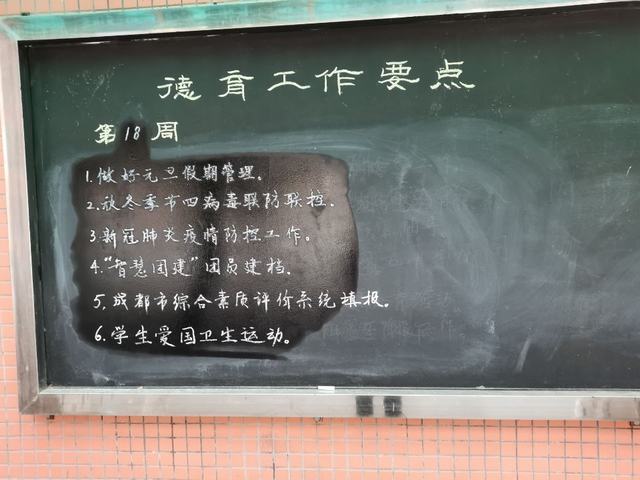 德育工作要点
第18周
1.做好元旦假期管理.
2.秋冬季节四病毒联防联控.
3.新冠肺炎疫情防控工作。
4."智慧团建"团员建档.
5.成都市综合素质评价系统填报.
6.学生爱国卫生运动。